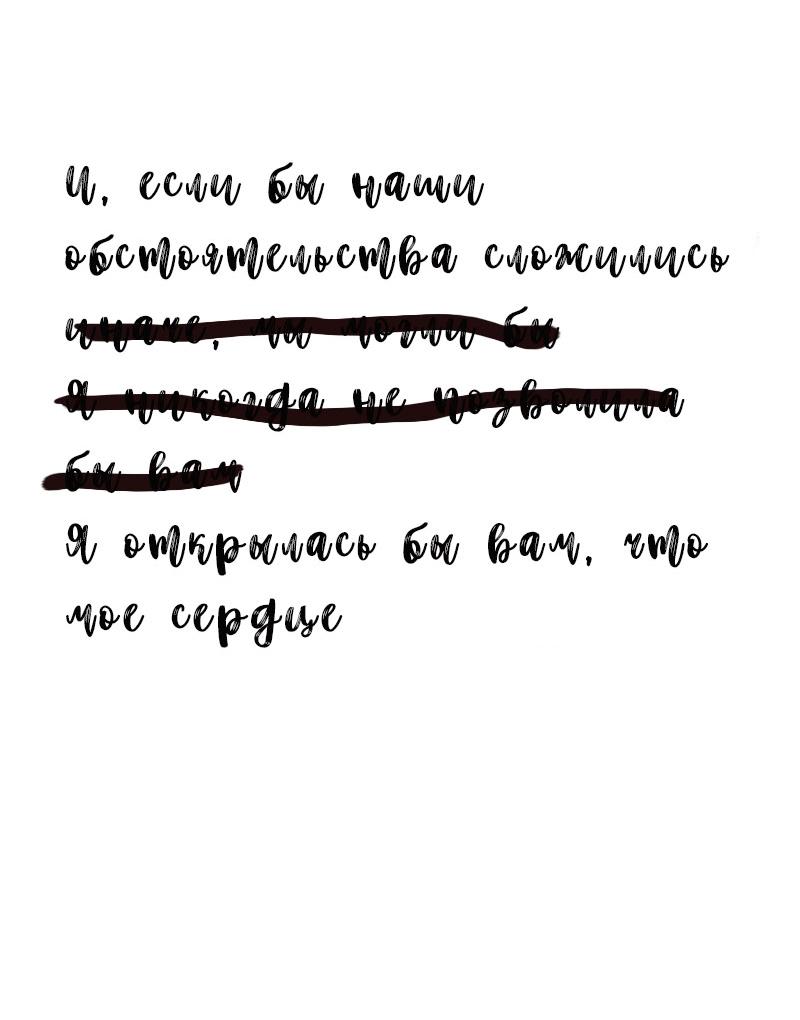 И, если бы наши
обстоятельства сложились
иначе, мы могли бы
Я никогда не позволила
бы вам
Я открылась бы вам, что
мое сердце